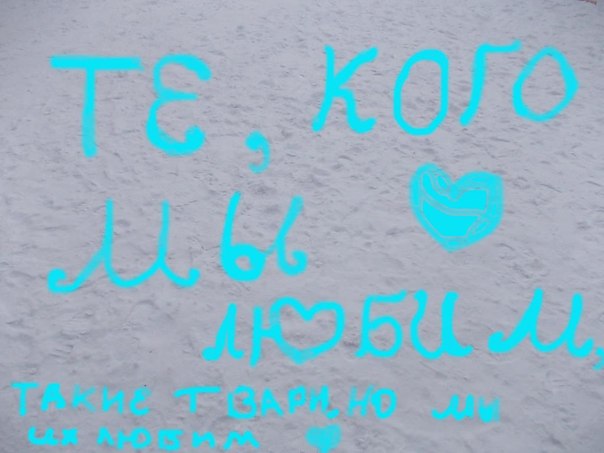 ТЕ, КОГО
МЫ
ЛЮБИМ,
ТАКИЕ ТВАРИ, НО МЫ
ИХ ЛЮБИМ